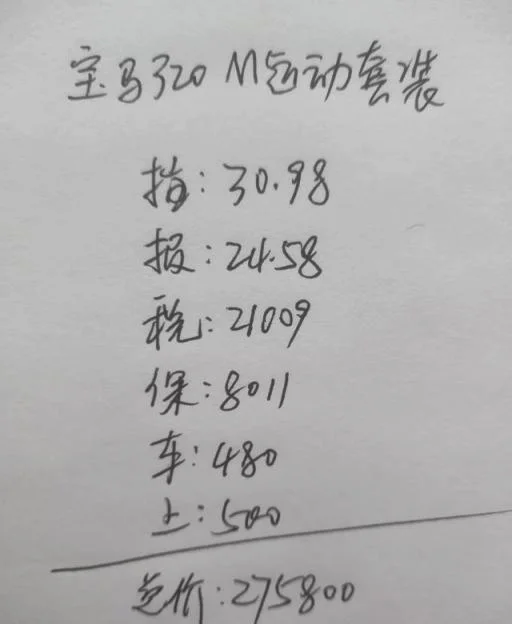 宝马320 M运动套装
指:30.98
报:24.58
税:21009
保:8011
车:480
上:500
总价:275800